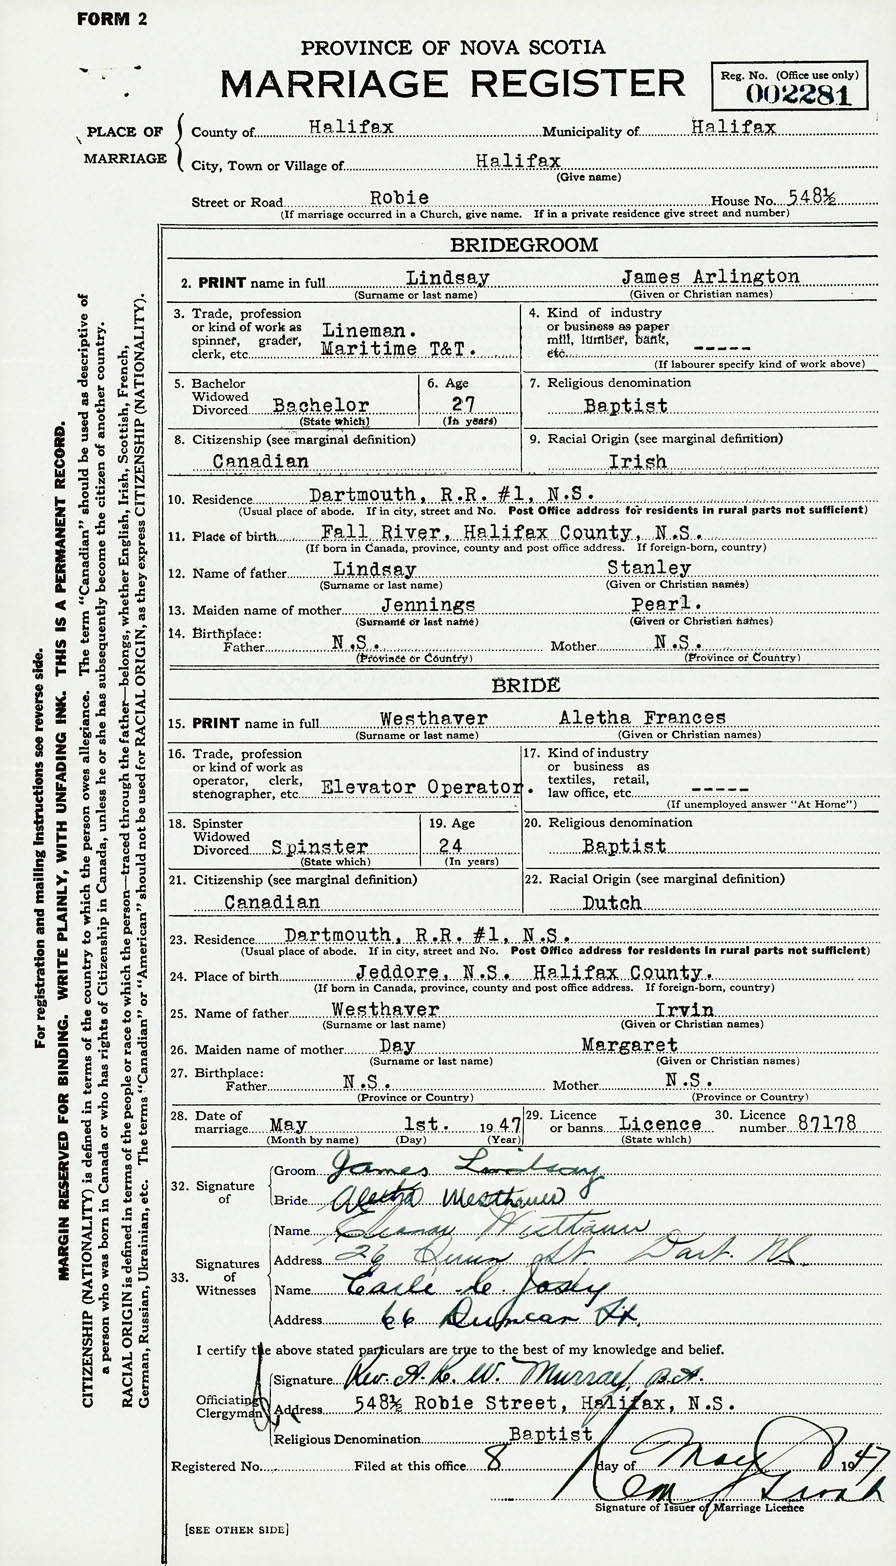 FORM 2
PROVINCE OF NOVA SCOTIA
MARRIAGE REGISTER
Reg. No. (Office use only)
002281
PLACE OF MARRIAGE
County of Halifax Municipality of Halifax
City, Town or Village of Halifax
(Give name)
Street or Road Robie House No. 548½
(If marriage occurred in a Church, give name. If in a private residence give street and number)
BRIDEGROOM
2. PRINT name in full Lindsay James Arlington
(Surname or last name) (Given or Christian names)
3. Trade, profession or kind of work as spinner, grader, clerk, etc. Lineman. Maritime T&T.
4. Kind of industry or business as paper mill, lumber, bank, etc. -----
(If labourer specify kind of work above)
5. Bachelor Widowed Divorced Bachelor
(State which)
6. Age 27
(In years)
7. Religious denomination
Baptist
8. Citizenship (see marginal definition)
Canadian
9. Racial Origin (see marginal definition)
Irish
10. Residence Dartmouth, R.R. #1, N.S.
(Usual place of abode. If in city, street and No. Post Office address for residents in rural parts not sufficient)
11. Place of birth Fall River, Halifax County, N.S.
(If born in Canada, province, county and post office address. If foreign-born, country)
12. Name of father Lindsay Stanley
(Surname or last name) (Given or Christian names)
13. Maiden name of mother Jennings Pearl.
(Surname or last name) (Given or Christian names)
14. Birthplace:
Father N.S. Mother N.S.
(Province or Country) (Province or Country)
BRIDE
15. PRINT name in full Westhaver Aletha Frances
(Surname or last name) (Given or Christian names)
16. Trade, profession or kind of work as operator, clerk, stenographer, etc. Elevator Operator.
17. Kind of industry or business as textiles, retail, law office, etc. -----
(If unemployed answer "At Home")
18. Spinster Widowed Divorced Spinster
(State which)
19. Age 24
(In years)
20. Religious denomination
Baptist
21. Citizenship (see marginal definition)
Canadian
22. Racial Origin (see marginal definition)
Dutch
23. Residence Dartmouth, R.R. #1, N.S.
(Usual place of abode. If in city, street and No. Post Office address for residents in rural parts not sufficient)
24. Place of birth Jeddore, N.S. Halifax County.
(If born in Canada, province, county and post office address. If foreign-born, country)
25. Name of father Westhaver Irvin
(Surname or last name) (Given or Christian names)
26. Maiden name of mother Day Margaret
(Surname or last name) (Given or Christian names)
27. Birthplace:
Father N.S. Mother N.S.
(Province or Country) (Province or Country)
28. Date of marriage May 1st. 1947
(Month by name) (Day) (Year)
29. Licence or banns Licence
(State which)
30. Licence number 87178
32. Signature of
Groom James Lindsay
Bride Aletha Westhaver
33. Signatures of Witnesses
Name Westhaver
Address 26 Queen St. Dart. N.S.
Name Earle C Josey
Address 66 Duncan St.
I certify the above stated particulars are true to the best of my knowledge and belief.
Officiating Clergyman
Signature Rev. A. K. W. Murray, B.A.
Address 548½ Robie Street, Halifax, N.S.
Religious Denomination Baptist
Registered No. Filed at this office 8 day of May 1947
Signature of Issuer of Marriage Licence
[SEE OTHER SIDE]
For registration and mailing instructions see reverse side.
MARGIN RESERVED FOR BINDING. WRITE PLAINLY, WITH UNFADING INK. THIS IS A PERMANENT RECORD.
CITIZENSHIP (NATIONALITY) is defined in terms of the country to which the person owes allegiance. The term "Canadian" should be used as descriptive of
a person who was born in Canada or who has rights of Citizenship in Canada, unless he or she has subsequently become the citizen of another country.
RACIAL ORIGIN is defined in terms of the people or race to which the person—traced through the father—belongs, whether English, Irish, Scottish, French,
German, Russian, Ukrainian, etc. The terms "Canadian" or "American" should not be used for RACIAL ORIGIN, as they express CITIZENSHIP (NATIONALITY).